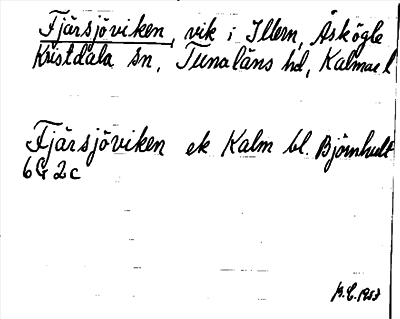 Fjärsjöviken, vik i Illern, Äskögle
Kristdala sn, Tunaläns hd, Kalmar l
Fjärsjöviken ek Kalm bl. Björnhult
6G 2c
1953